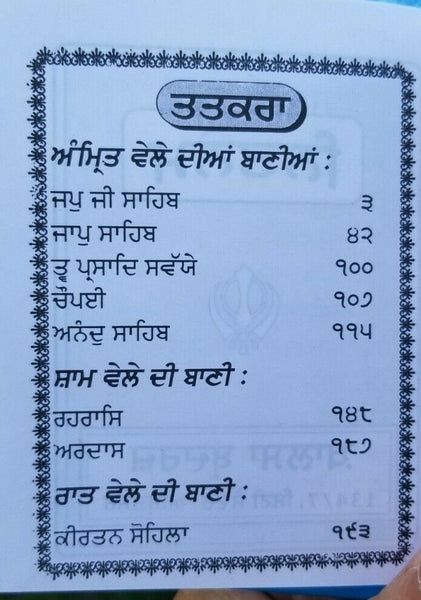 ਤਤਕਰਾ
ਅੰਮ੍ਰਿਤ ਵੇਲੇ ਦੀਆਂ ਬਾਣੀਆਂ :
ਜਪੁ ਜੀ ਸਾਹਿਬ ੩
ਜਾਪੁ ਸਾਹਿਬ ੪੨
ਤ੍ਵ ਪ੍ਰਸਾਦਿ ਸਵੱਯੇ ੧੦੦
ਚੌਪਈ ੧੦੭
ਅਨੰਦੁ ਸਾਹਿਬ ੧੧੫
ਸ਼ਾਮ ਵੇਲੇ ਦੀ ਬਾਣੀ :
ਰਹਰਾਸਿ ੧੪੮
ਅਰਦਾਸ ੧੮੭
ਰਾਤ ਵੇਲੇ ਦੀ ਬਾਣੀ :
ਕੀਰਤਨ ਸੋਹਿਲਾ ੧੯੩